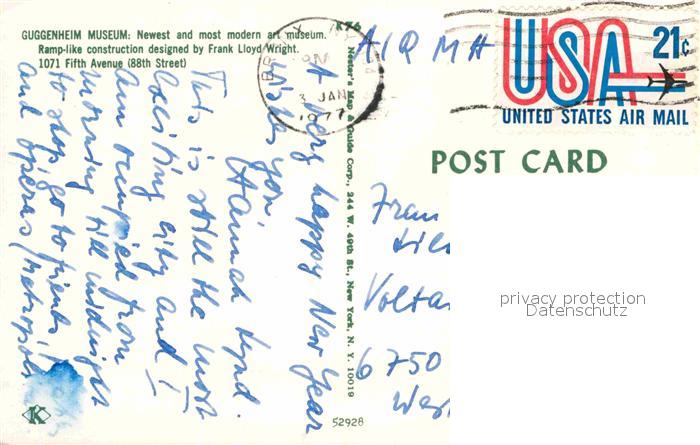 GUGGENHEIM MUSEUM: Newest and most modern art museum.
Ramp-like construction designed by Frank Lloyd Wright.
1071 Fifth Avenue (88th Street)
A very happy New Year
wishes you
Hannah
This is still the most
exciting city and I
am occupied from
morning till midnight
to shop, go to friends
and operas (Metropol
K76
Nester's Map & Guide Corp., 244 W. 49th St., New York, N. Y. 10019
52928
K
PM
3 JAN
1977
AIR
USA 21c
UNITED STATES AIR MAIL
POST CARD
Frau
Volta
6750
privacy protection
Datenschutz